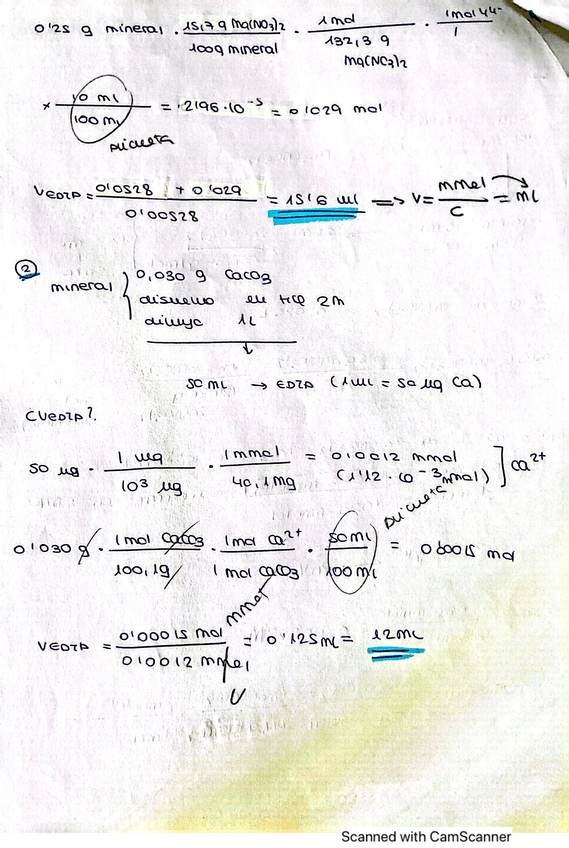 0'25 g mineral · 15,7 g Mg(NO3)2 / 100g mineral · 1 mol / 132,3 g Mg(NO3)2 · 1mol / 1
× 10 ml / 100 ml = 2'196·10⁻⁵ = 0'1029 mol
alícuota
VEDTA = 0'0528 + 0'1029 / 0'00528 = 15'6 ml ⟹ V = mmol / C = ml
②
mineral { 0,030 g CaCO3
disuelvo en HCl 2M
diluye 1L
↓
50 ML → EDTA (1 ml = 50 μg Ca)
CVEDTA?
50 μg · 1 mg / 10³ μg · 1 mmol / 40,1 mg = 0'0012 mmol (1'12·10⁻³ mmol) ] Ca²⁺
0'030 g · 1 mol CaCO3 / 100,1g · 1 mol Ca²⁺ / 1 mol CaCO3 · 50 ml / 100 ml = 0'00015 mol
alícuota
VEDTA = 0'00015 mol / 0'0012 mmol = 0'125 ml = 12 ml
mmol
V
Scanned with CamScanner